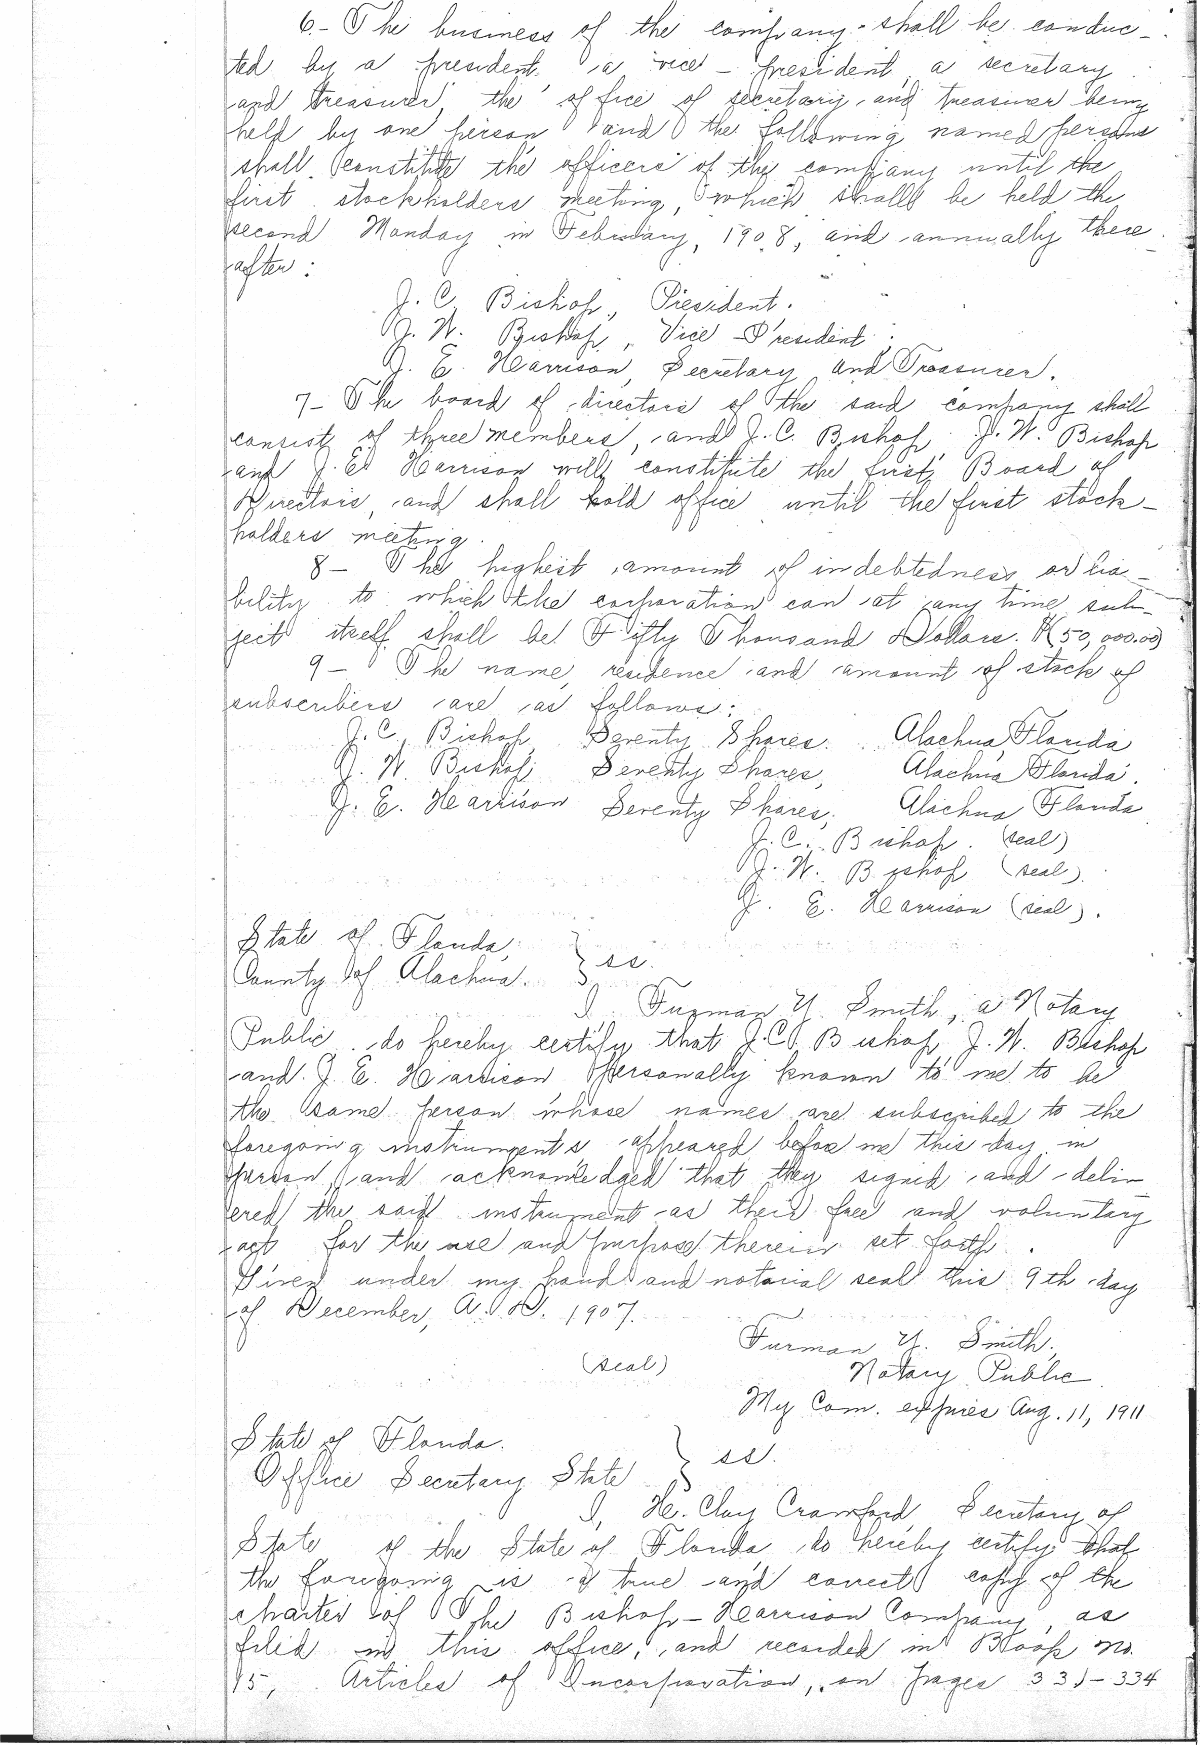 6- The business of the company shall be conduc-
ted by a president, a vice-president, a secretary
and treasurer, the office of secretary and treasurer being
held by one person, and the following named persons
shall constitute the officers of the company until the
first stockholders meeting, which shall be held the
second Monday in February, 1908, and annually there
after:
J. C. Bishop, President.
J. W. Bishop, Vice-President,
J. E. Harrison, Secretary and Treasurer.
7- The board of directors of the said company shall
consist of three members, and J. C. Bishop, J. W. Bishop
and J. E. Harrison will constitute the first Board of
Directors, and shall hold office until the first stock-
holders meeting.
8- The highest amount of indebtedness or lia-
bility to which the corporation can at any time sub-
ject itself shall be Fifty Thousand Dollars. ($50,000.00)
9- The name, residence and amount of stock of
subscribers are as follows:
J. C. Bishop, Seventy Shares. Alachua, Florida
J. W. Bishop, Seventy Shares, Alachua Florida.
J. E. Harrison Seventy Shares, Alachua Florida
J. C. Bishop. (seal)
J. W. Bishop (seal).
J. E. Harrison (seal).
State of Florida,
County of Alachua. } ss.
I Furman Y. Smith, a Notary
Public do hereby certify that J. C. Bishop, J. W. Bishop
and J. E. Harrison personally known to me to be
the same person whose names are subscribed to the
foregoing instruments appeared before me this day in
person, and acknowledged that they signed and deliv-
ered the said instrument as their free and voluntary
act for the use and purpose therein set forth.
Given under my hand and notarial seal this 9th day
of December, A. D. 1907.
Furman Y. Smith,
(seal) Notary Public
My Com. expires Aug. 11, 1911
State of Florida.
Office Secretary State } ss.
I, H. Clay Crawford Secretary of
State of the State of Florida, do hereby certify that
the foregoing is a true and correct copy of the
charter of The Bishop-Harrison Company, as
filed in this office, and recorded in Book no.
15, Articles of Incorporation, on pages 331-334